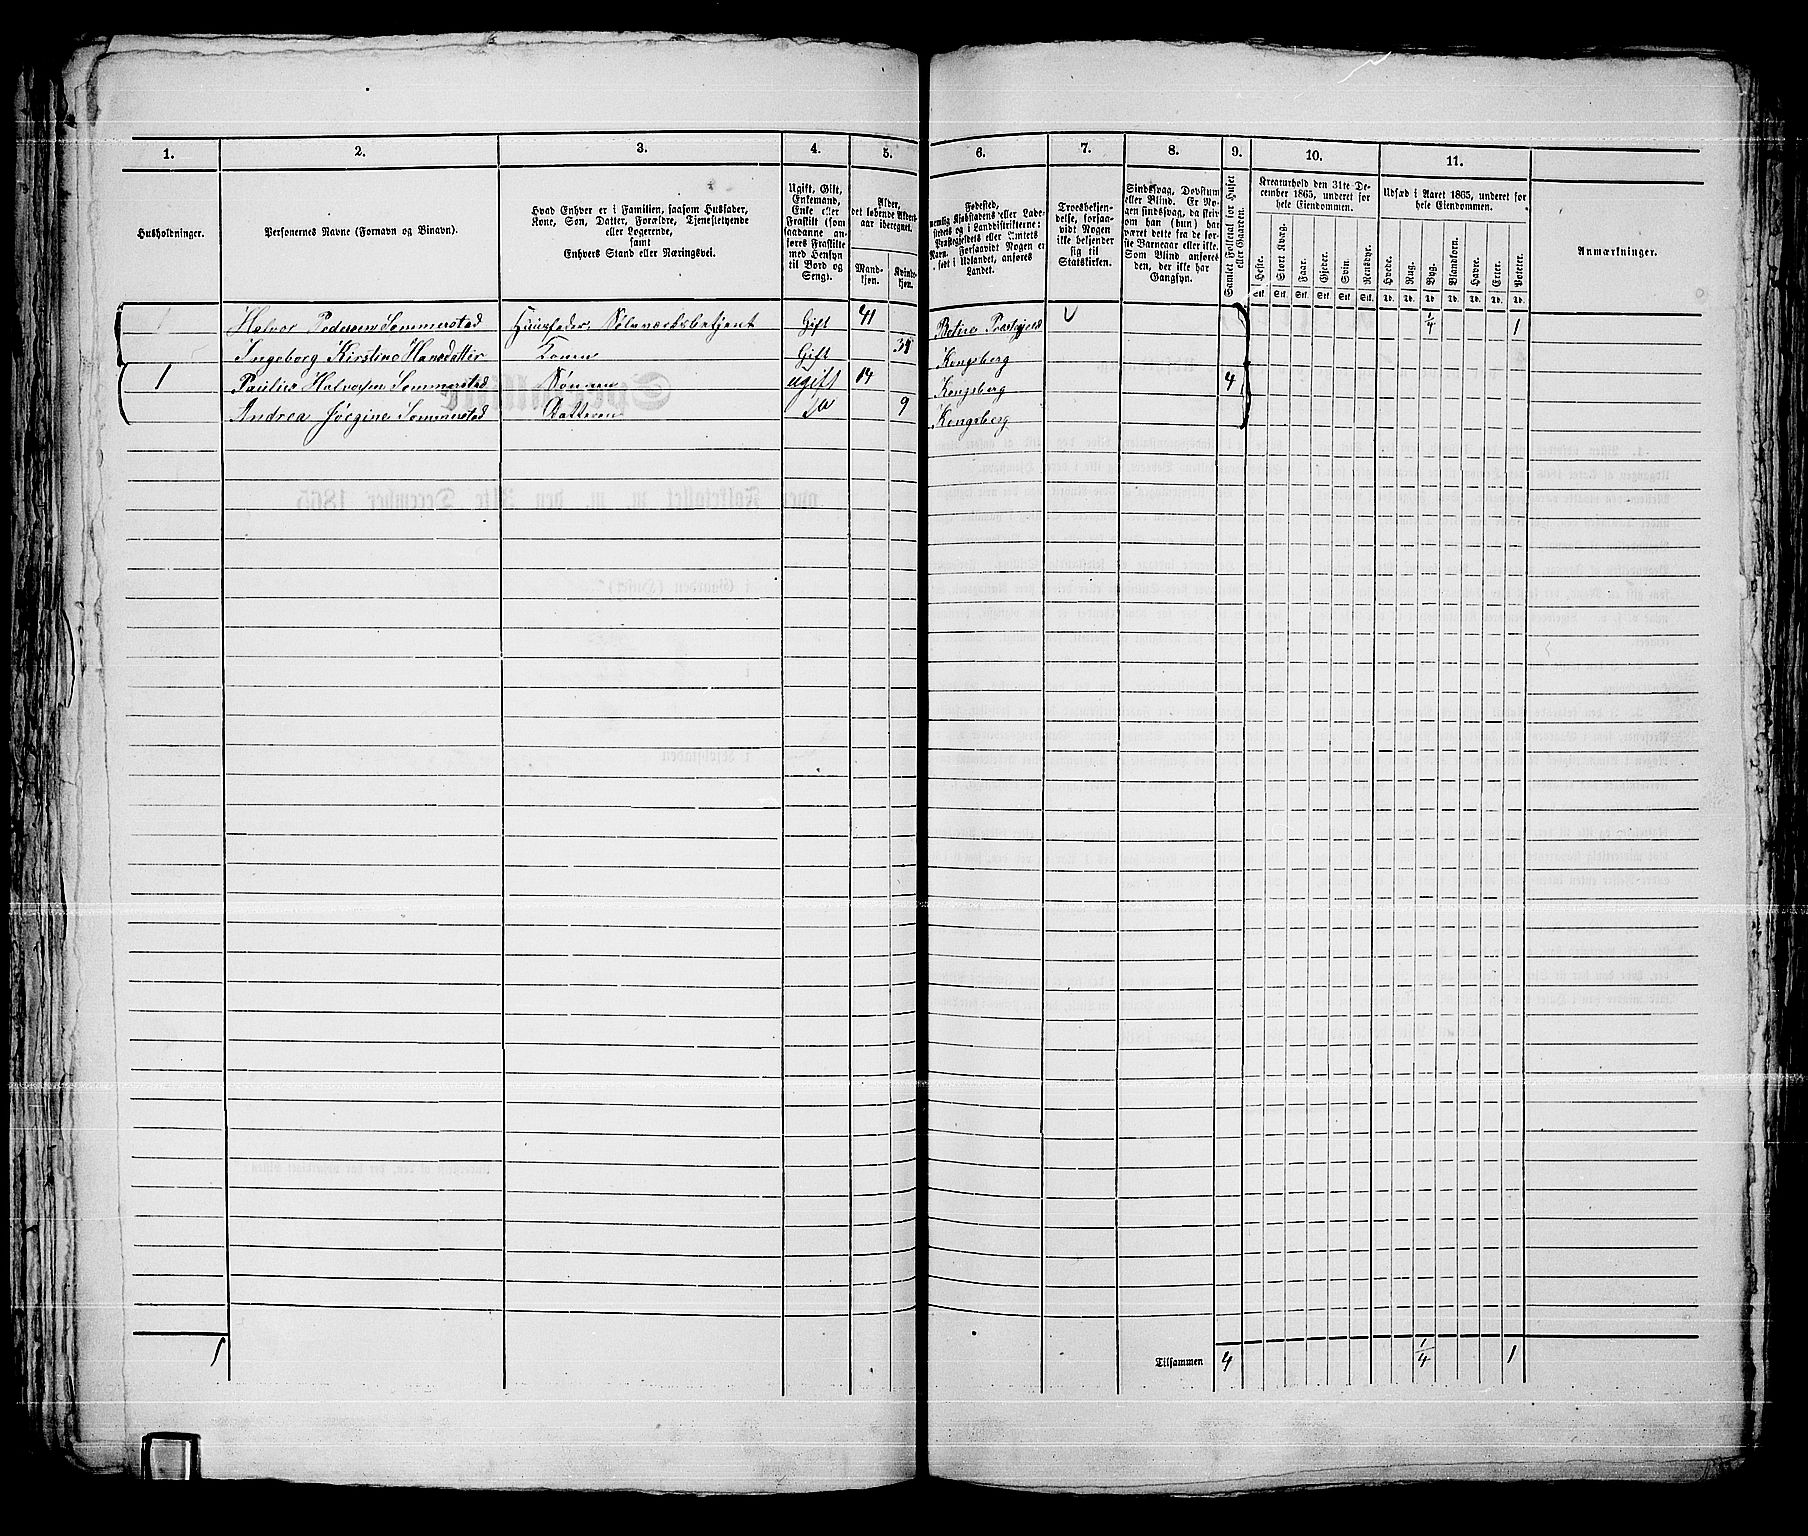 1. 2. 3. 4. 5. 6. 7. 8. 9. 10. 11.
Husholdninger.
Personernes Navne (Fornavn og Binavn).
Hvad Enhver er i Familien, saasom Husfader,
Kone, Søn, Datter, Forældre, Tjenestetyende
eller Logerende,
samt
Enhvers Stand eller Næringsvei.
Ugift, Gift,
Enkemand,
Enke eller
Fraskilt (som
saadanne an-
føres Fraskilte
med Hensyn
til Bord og
Seng).
Alder,
det løbende Alders-
aar iberegnet.
Mand-
kjøn.
Kvinde-
kjøn.
Fødested,
nemlig Kjøbstadens eller Lade-
stedets og i Landdistrikterne:
Præstegjeldets eller Amtets
Navn. Forsaavidt Nogen er
født i Udlandet, anføres
Landet.
Troesbekjen-
delse, forsaa-
vidt Nogen
ikke bekjender
sig til
Statskirken.
Sindssvag, Døvstum
eller Blind. Er No-
gen sindssvag, da skriv
om han (hun) har
været dette fra de før-
ste Barneaar eller ikke.
Som Blind anføres
den, der ikke har
Gangsyn.
Samlet Folketal for Huset
eller Gaarden.
Kreaturhold den 31te De-
cember 1865, underet for
hele Eiendommen.
Heste. Stort Kvæg. Faar. Gjeder. Svin. Rensdyr.
Stk. Stk. Stk. Stk. Stk. Stk.
Udsæd i Aaret 1865, underet for
hele Eiendommen.
Hvede. Rug. Byg. Blandkorn. Havre. Erter. Poteter.
Td. Td. Td. Td. Td. Td. Td.
Anmærkninger.
Halvor Pedersen Sommerstad Huusfader, Sølvværksbetjent Gift 41 Præstegjeld 1/4 1
Ingeborg Kirstine Hansdatter Konen Gift Kongsberg
1 Paulius Halvorsen Sommerstad Sønnen ugift 14 Kongsberg 4
Andrea Jørgine Sommerstad Datteren 9 Kongsberg
1 Tilsammen 4 1/4 1